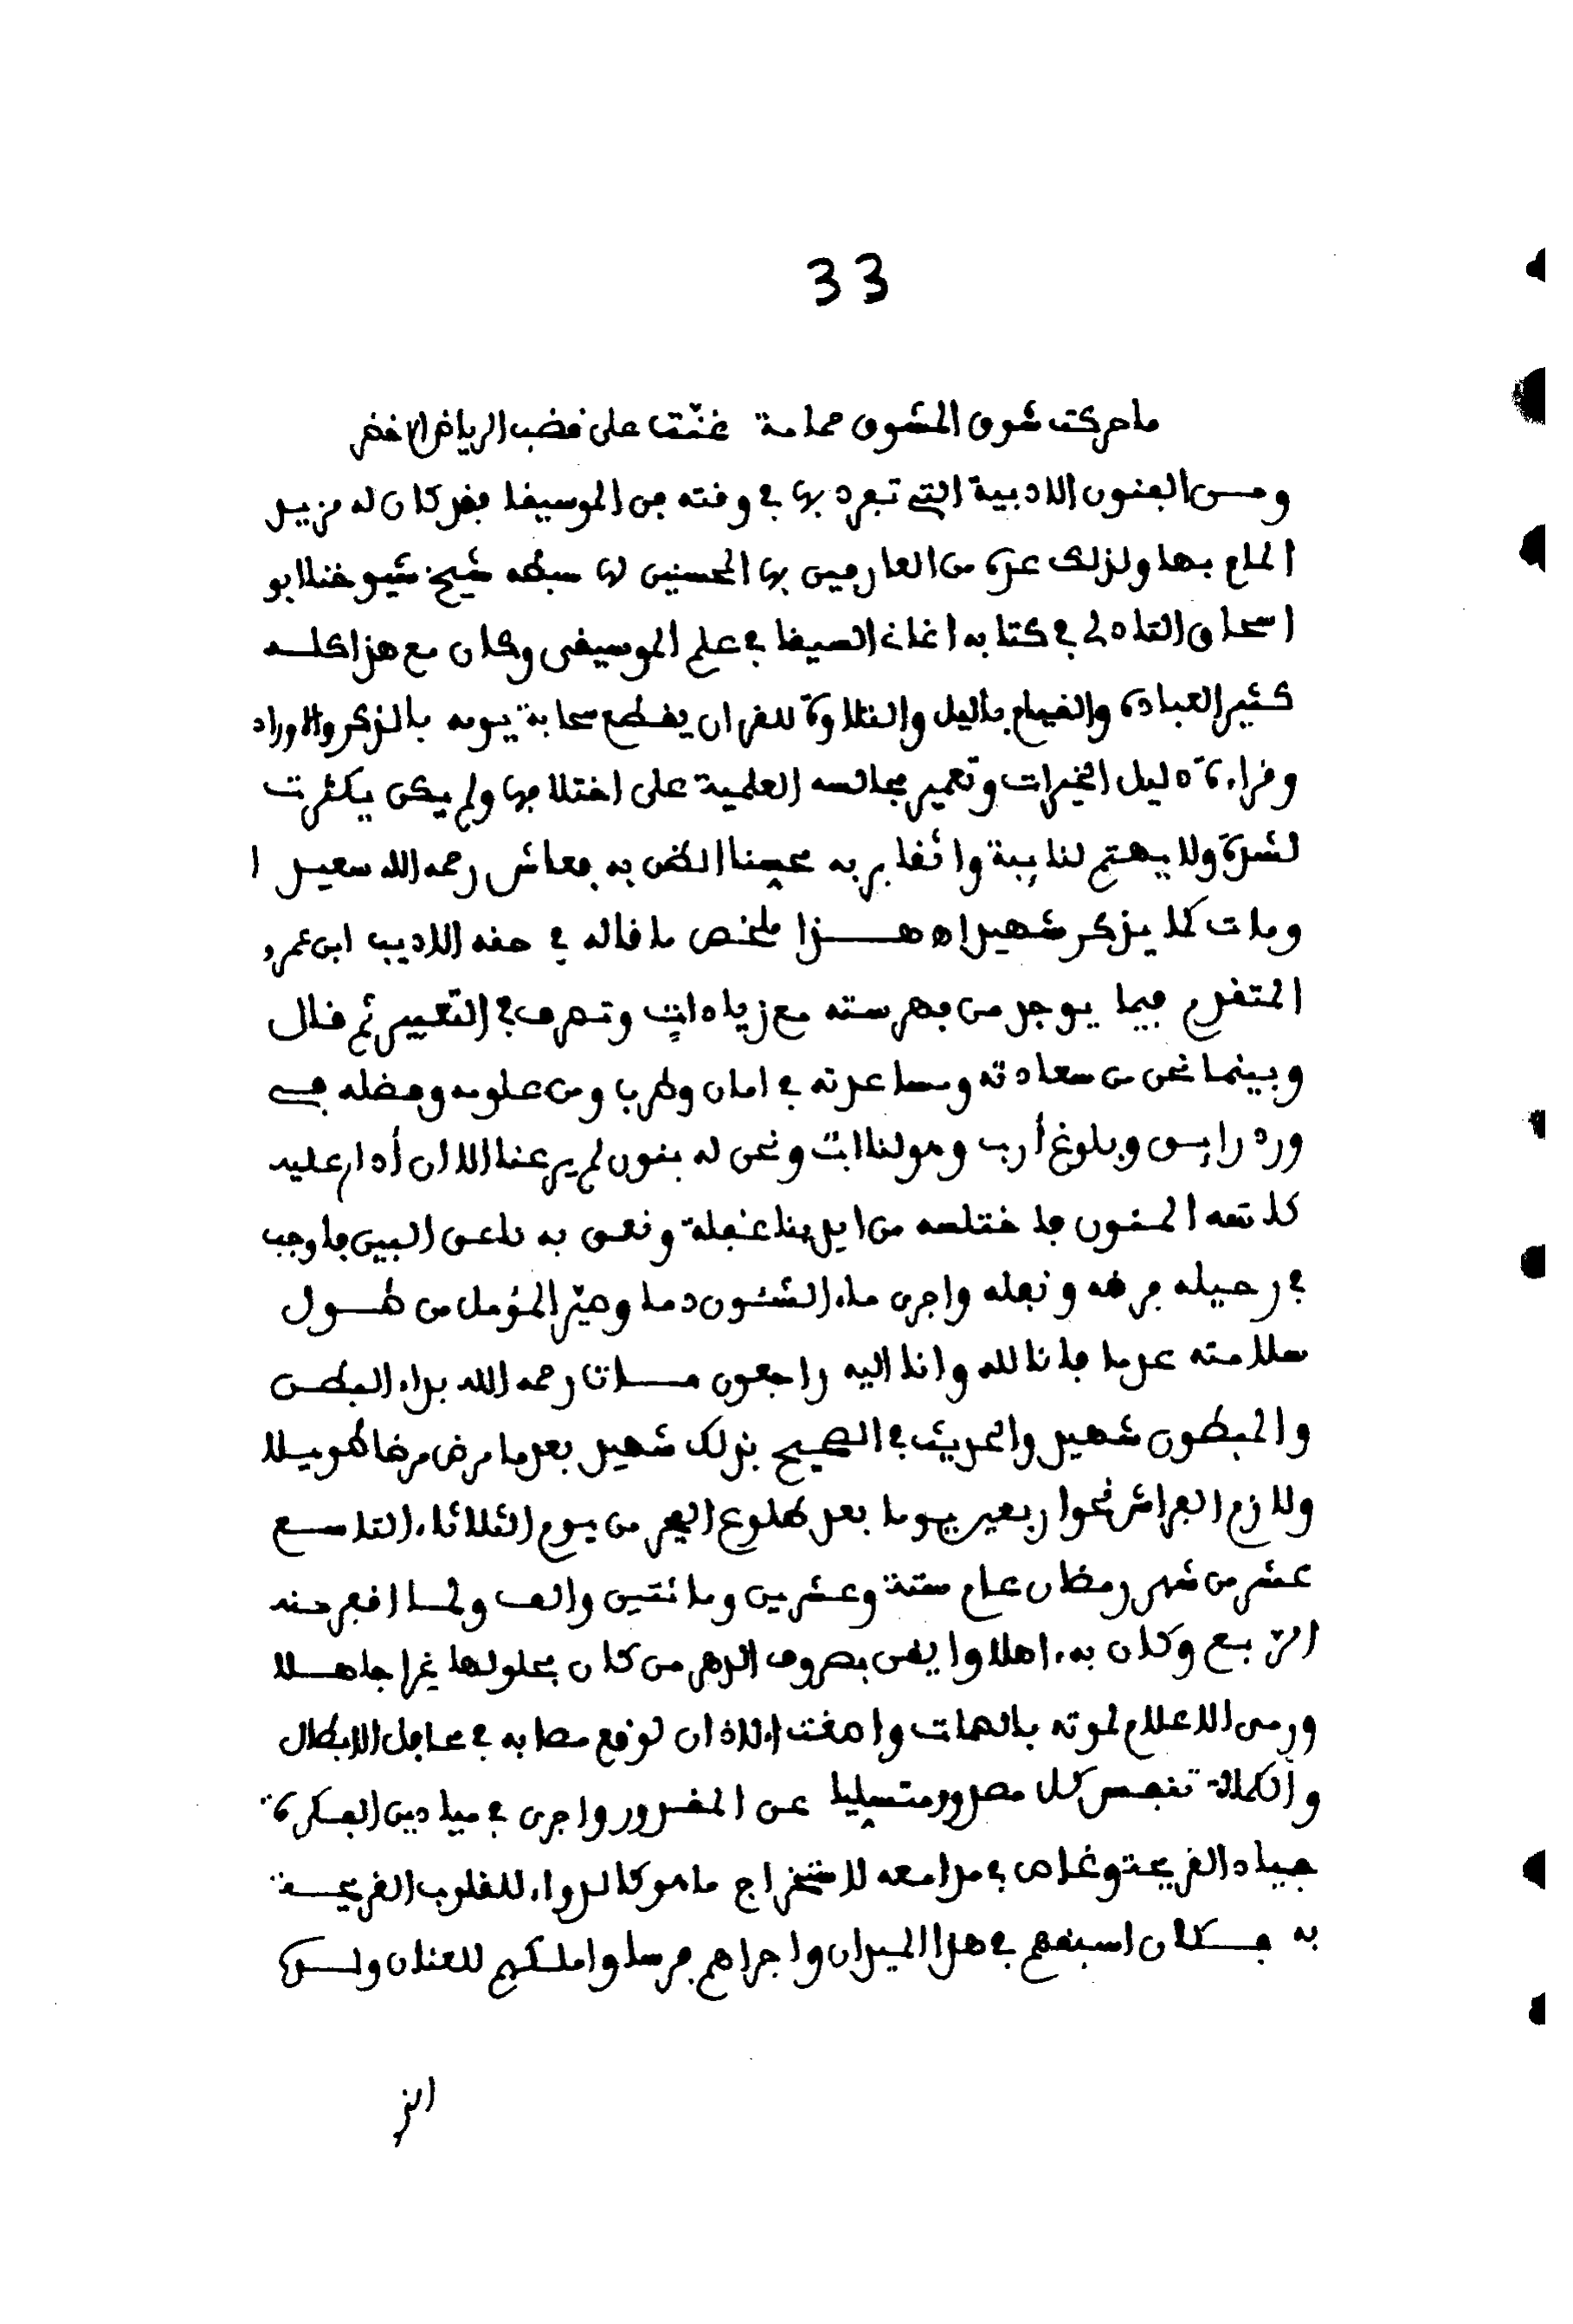 33
ما حركت شوق المشوق حمامة غنّت على قضب الرياض الاخضر
ومن الفنون الادبية التي تفرد بها في وقته فن الموسيقا فقد كان له مزيد
المام بها ولذلك عده من العارفين بها المحسنين لها سبطه شيخ شيوخنا ابو
اسحاق التادلى في كتابه اغانى السيقا في علم الموسيقى وكان مع هذا كله
كثير العبادة والقيام بالليل والتلاوة للقران يقطع سحابة يومه بالذكر والاوراد
وقراءة دليل الخيرات وتعمير مجالسه العلمية على اختلافها ولم يكن يكثرت
لشدة ولا يهتم لنايبة واثقا بربه محسنا الظن به فعاش رحمه الله سعيدا
ومات كما يذكر شهيدا اه هذا ملخص ما قاله في حقه الاديب ابن عمرو
المتقدم فيما يوجد من فهرسته مع زيادات وتصرف في التعبير ثم قال
وبينما نحن من سعادته ومساعدته في امان وطرب ومن علومه وفضله في
ورد رايق وبلوغ أرب وهو لنا اب ونحن له بنون لم يرعنا الا ان أدار عليه
كاسه المنون فاختلسه من ايدينا غفلة ونعى به ناعى البين فاوجب
في رحيله فرضه ونفله واجرى ماء الشئون دما وصيّر المؤمل من طول
سلامته عدما فانا لله وانا اليه راجعون مات رحمه الله بداء البطن
والمبطون شهيد والحديث في الصحيح بذلك شهيد بعدما مرض مرضا طويلا
ولازم الفراش نحو اربعين يوما بعد طلوع الفجر من يوم الثلاثاء التاسع
عشر من شهر رمضان عام ستة وعشرين ومائتين والف ولما اقفر منه
الربع وكان به ءاهلا وايقن بصروف الدهر من كان بحلولها غرا جاهلا
ورمى الاعلام لموته بالهات واصغت الاذان لوقع مصابه في محافل الابطال
واطالة تنفس كل مصدور متسليا عن المقدور واجرى في ميادين الفكرة
جياد القريحة وغاص في مدامعه لاستخراج ما هو كالدواء للقلوب القريحة
به فكان اسبقهم في هذا الميدان واجراهم فرسا واملكهم للعنان ولسن
الز